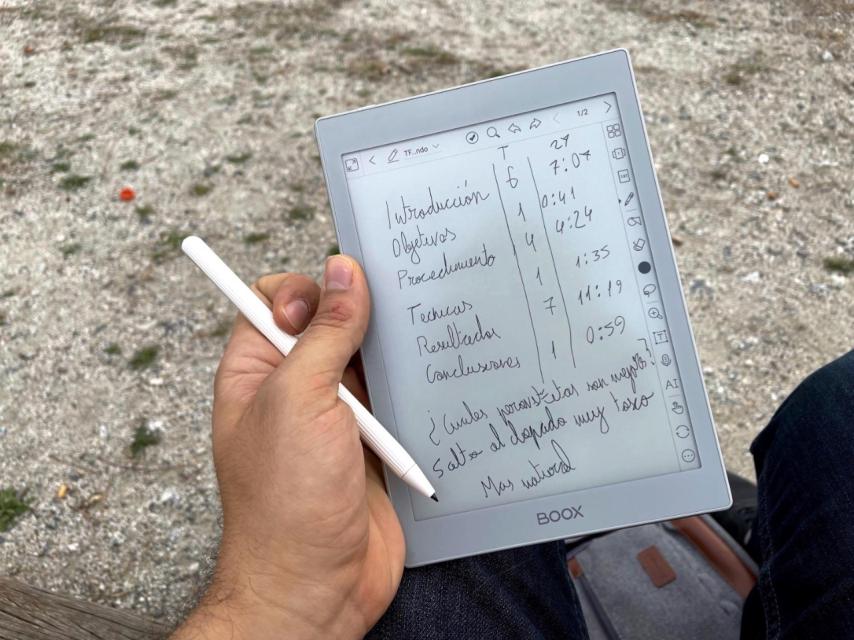 TF...ndo 1/2
T
Introducción 6 7:07
Objetivos 1 0:41
Procedimiento 4 4:24
Tecnicas 1 1:35
Resultados 7 11:19
Conclusiones 1 0:59
¿Cuales son mejores?
Salto al dopado muy
Mas natural
AI
BOOX